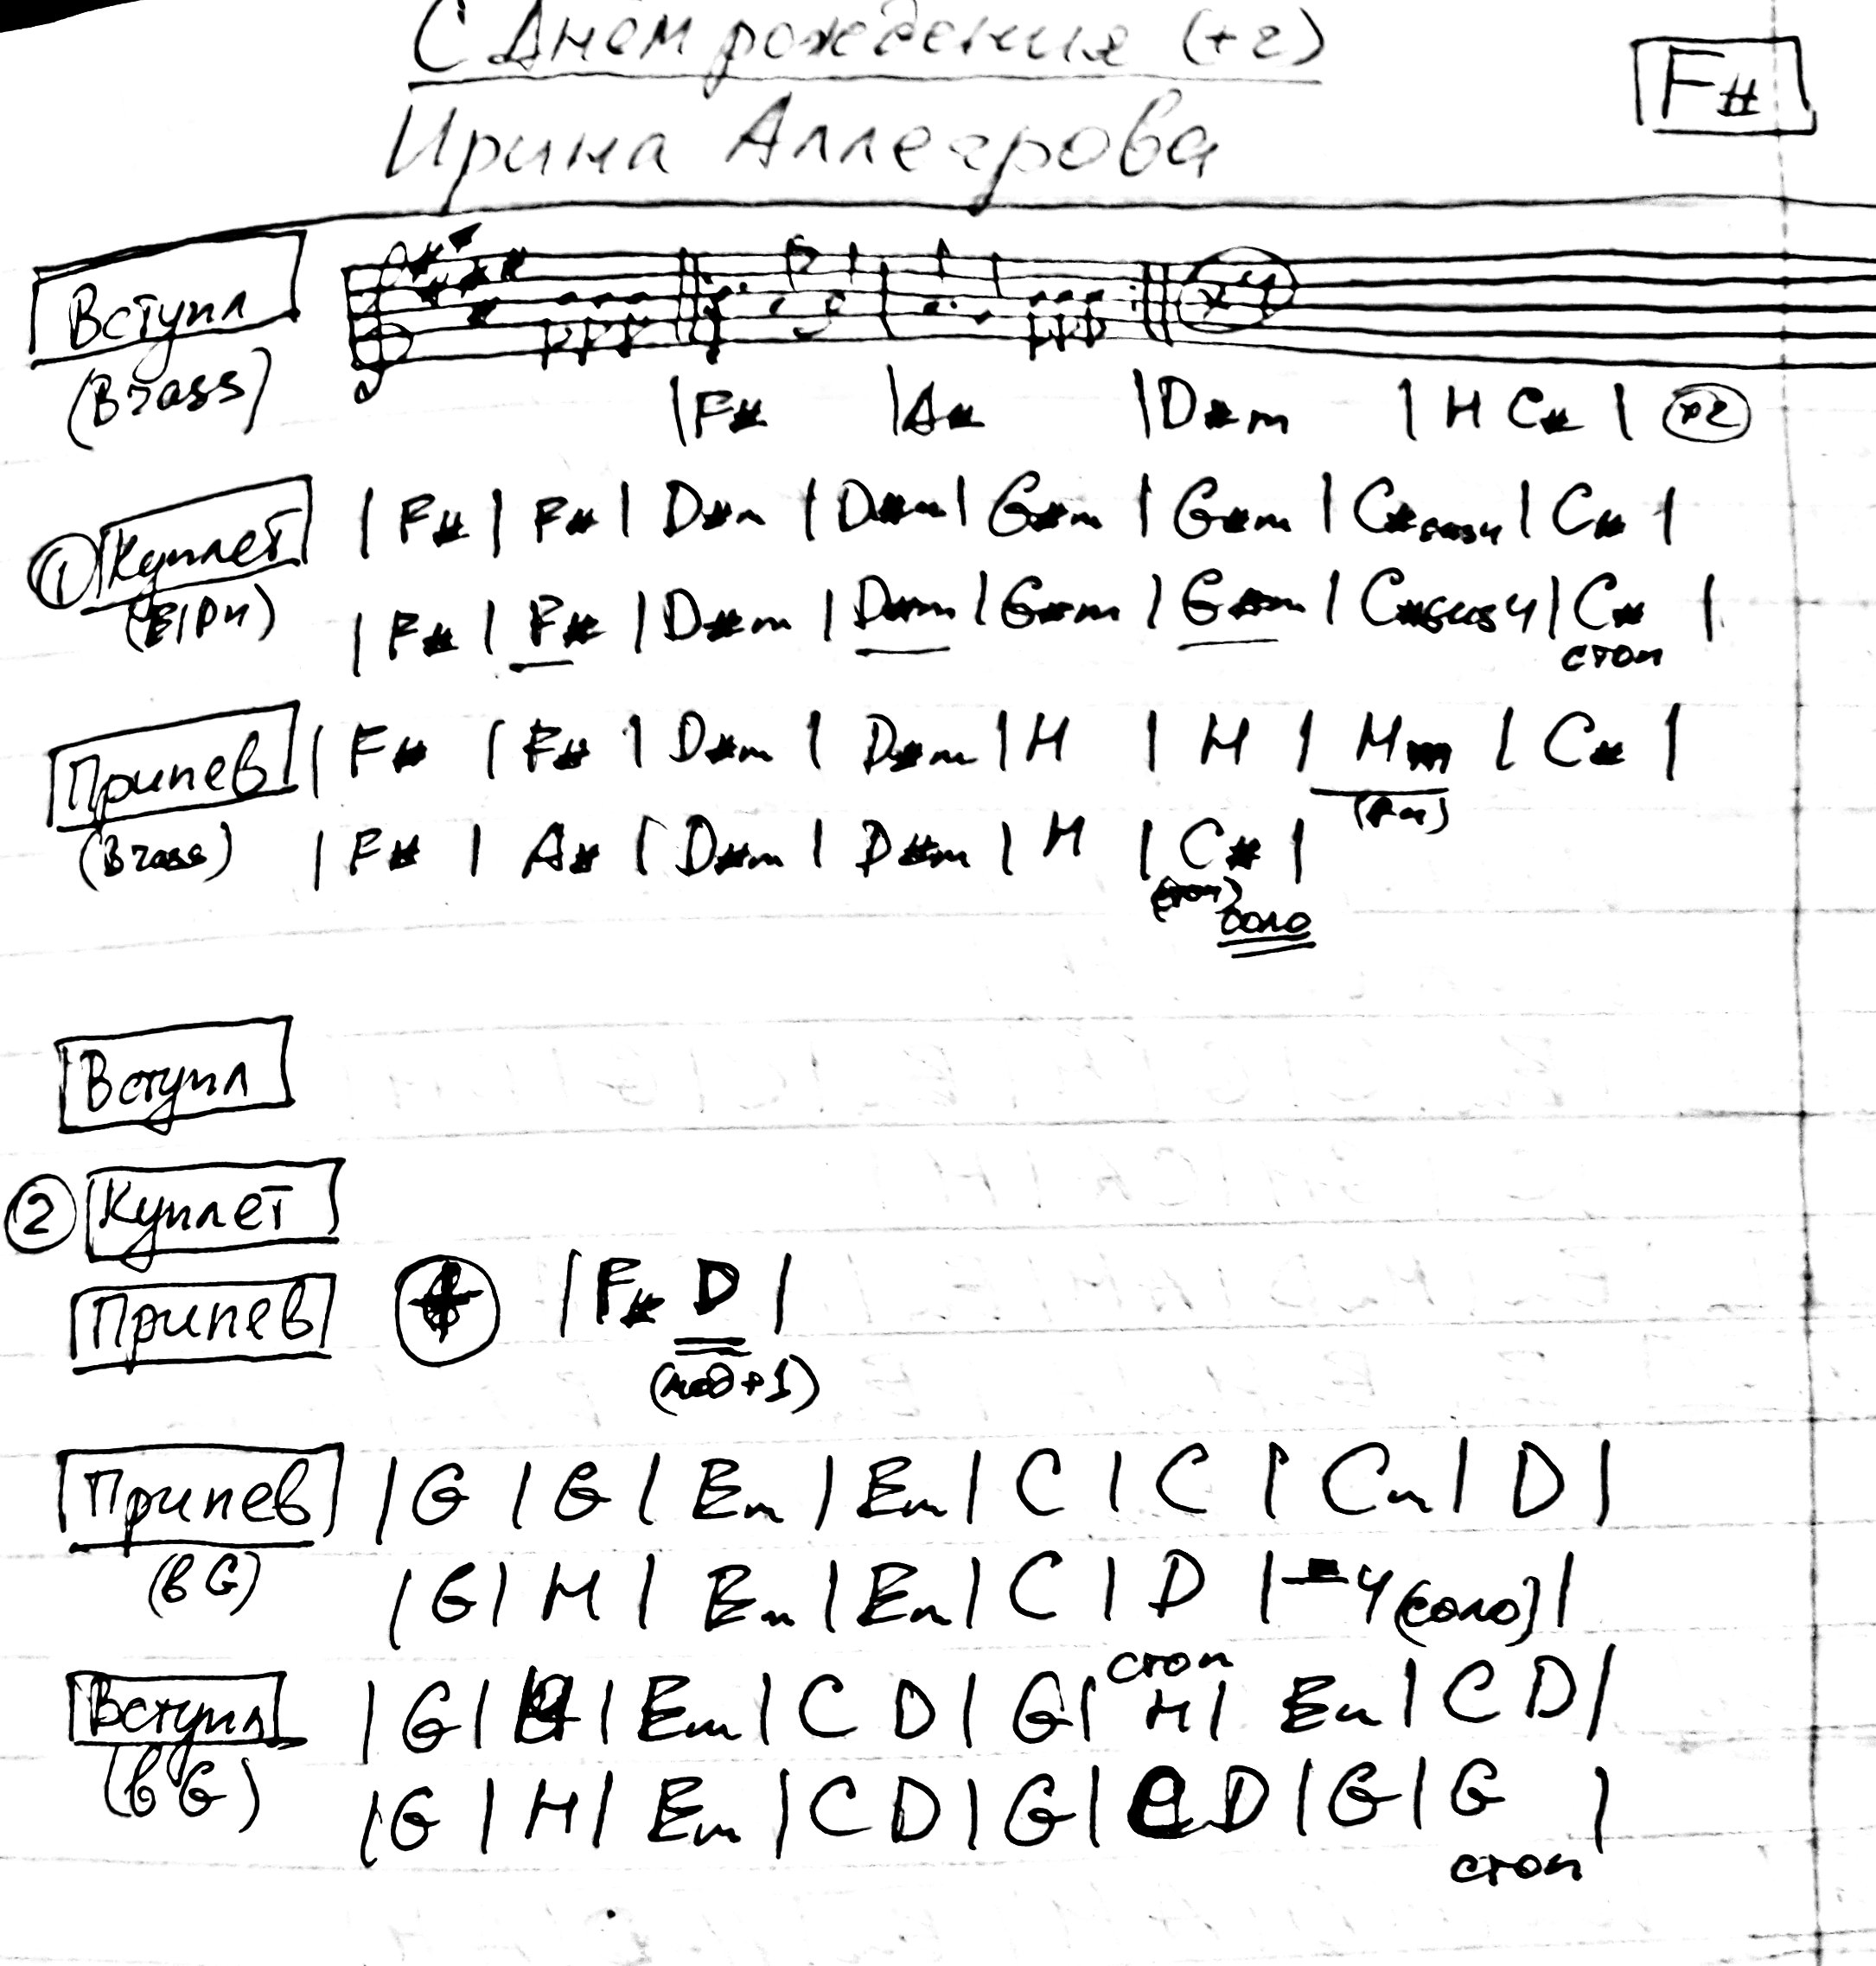 С Днём рождения (+2)
F#
Ирина Аллегрова
Вступл
(Brass)
| F# | A# | D#m | H C# | x2
① Куплет | F# | F# | D#m | D#m | G#m | G#m | C#sus4 | C# |
| F# | F# | D#m | D#m | G#m | G#m | C#sus4 | C# |
стоп
Припев | F# | F# | D#m | D#m | H | H | Hm | C# |
(Brass) | F# | A# | D#m | D#m | H | C# |
соло
Вступл
② Куплет
Припев | F# D |
(мод+1)
Припев | G | G | Em | Em | C | C | Cm | D |
(в G) | G | H | Em | Em | C | D | 4 (соло) |
стоп
Вступл | G | H | Em | C D | G | H | Em | C D |
(в G) | G | H | Em | C D | G | C D | G | G |
стоп